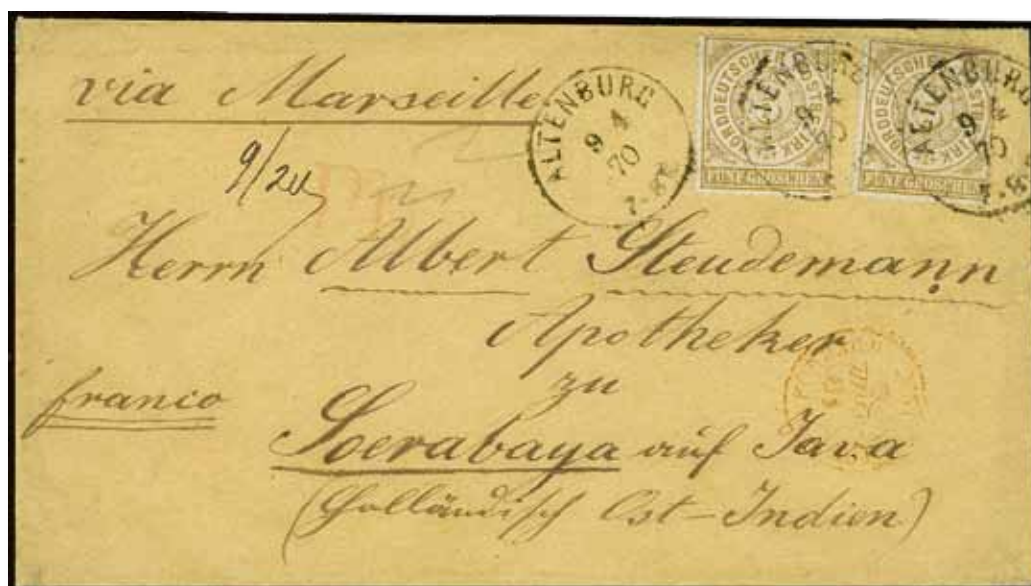 via Marseille
ALTENBURG
9 4
70
NORDDEUTSCHER POSTBEZIRK
FÜNF GROSCHEN
ALTENBURG
9
70
NORDDEUTSCHER POSTBEZIRK
FÜNF GROSCHEN
ALTENBURG
9 4
70
Herrn Albert Steudemann
Apotheker
zu
franco
Soerabaya auf Java
(Holländisch Ost-Indien)